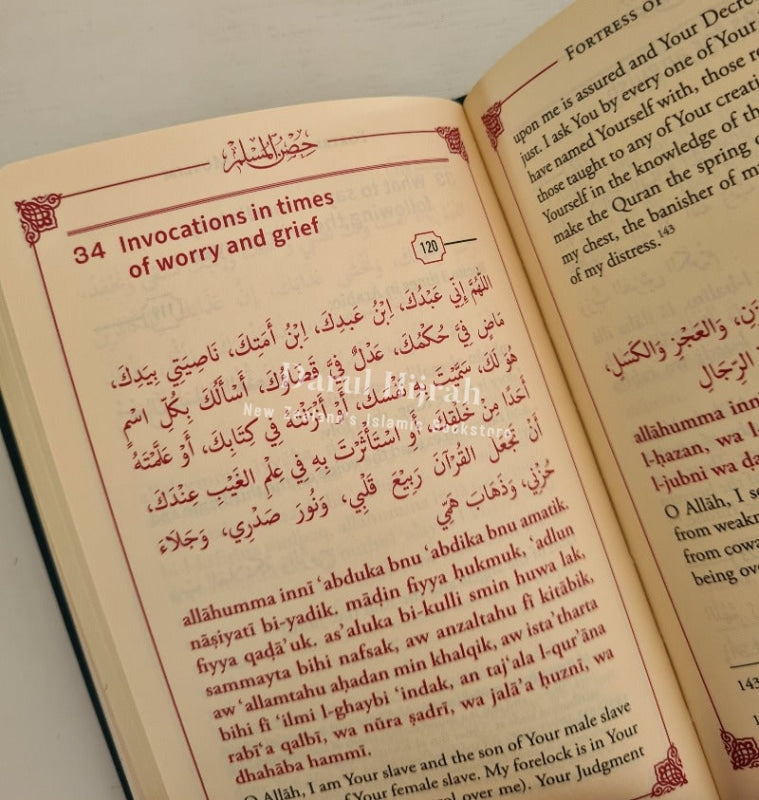 حصن المسلم
34 Invocations in times
of worry and grief
120
اللَّهُمَّ إِنِّي عَبْدُكَ، ابْنُ عَبْدِكَ، ابْنُ أَمَتِكَ، نَاصِيَتِي بِيَدِكَ،
مَاضٍ فِيَّ حُكْمُكَ، عَدْلٌ فِيَّ قَضَاؤُكَ، أَسْأَلُكَ بِكُلِّ اسْمٍ
هُوَ لَكَ، سَمَّيْتَ بِهِ نَفْسَكَ، أَوْ أَنْزَلْتَهُ فِي كِتَابِكَ، أَوْ عَلَّمْتَهُ
أَحَدًا مِنْ خَلْقِكَ، أَوِ اسْتَأْثَرْتَ بِهِ فِي عِلْمِ الْغَيْبِ عِنْدَكَ،
أَنْ تَجْعَلَ الْقُرْآنَ رَبِيعَ قَلْبِي، وَنُورَ صَدْرِي، وَجَلَاءَ
حُزْنِي، وَذَهَابَ هَمِّي
Darul Hijrah
New Zealand's Islamic Bookstore
allāhumma innī ʿabduka bnu ʿabdika bnu amatik.
nāṣiyatī bi-yadik. māḍin fiyya ḥukmuk, ʿadlun
fiyya qaḍāʾuk. asʾaluka bi-kulli smin huwa lak,
sammayta bihi nafsak, aw anzaltahu fī kitābik,
aw ʿallamtahu aḥadan min khalqik, aw istaʾtharta
bihi fī ʿilmi l-ghaybi ʿindak, an tajʿala l-qurʾāna
rabīʿa qalbī, wa nūra ṣadrī, wa jalāʾa ḥuznī, wa
dhahāba hammī.
O Allāh, I am Your slave and the son of Your male slave
of Your female slave. My forelock is in Your
over me). Your Judgment
FORTRESS OF
upon me is assured and Your Decre
just. I ask You by every one of Your
have named Yourself with, those re
those taught to any of Your creati
Yourself in the knowledge of th
make the Quran the spring o
my chest, the banisher of m
of my distress.143
وَالْعَجْزِ وَالْكَسَلِ،
الرِّجَالِ
allāhumma inn
l-ḥazan, wa l
l-jubni wa ḍa
O Allāh, I se
from weakn
from cowa
being ove
143